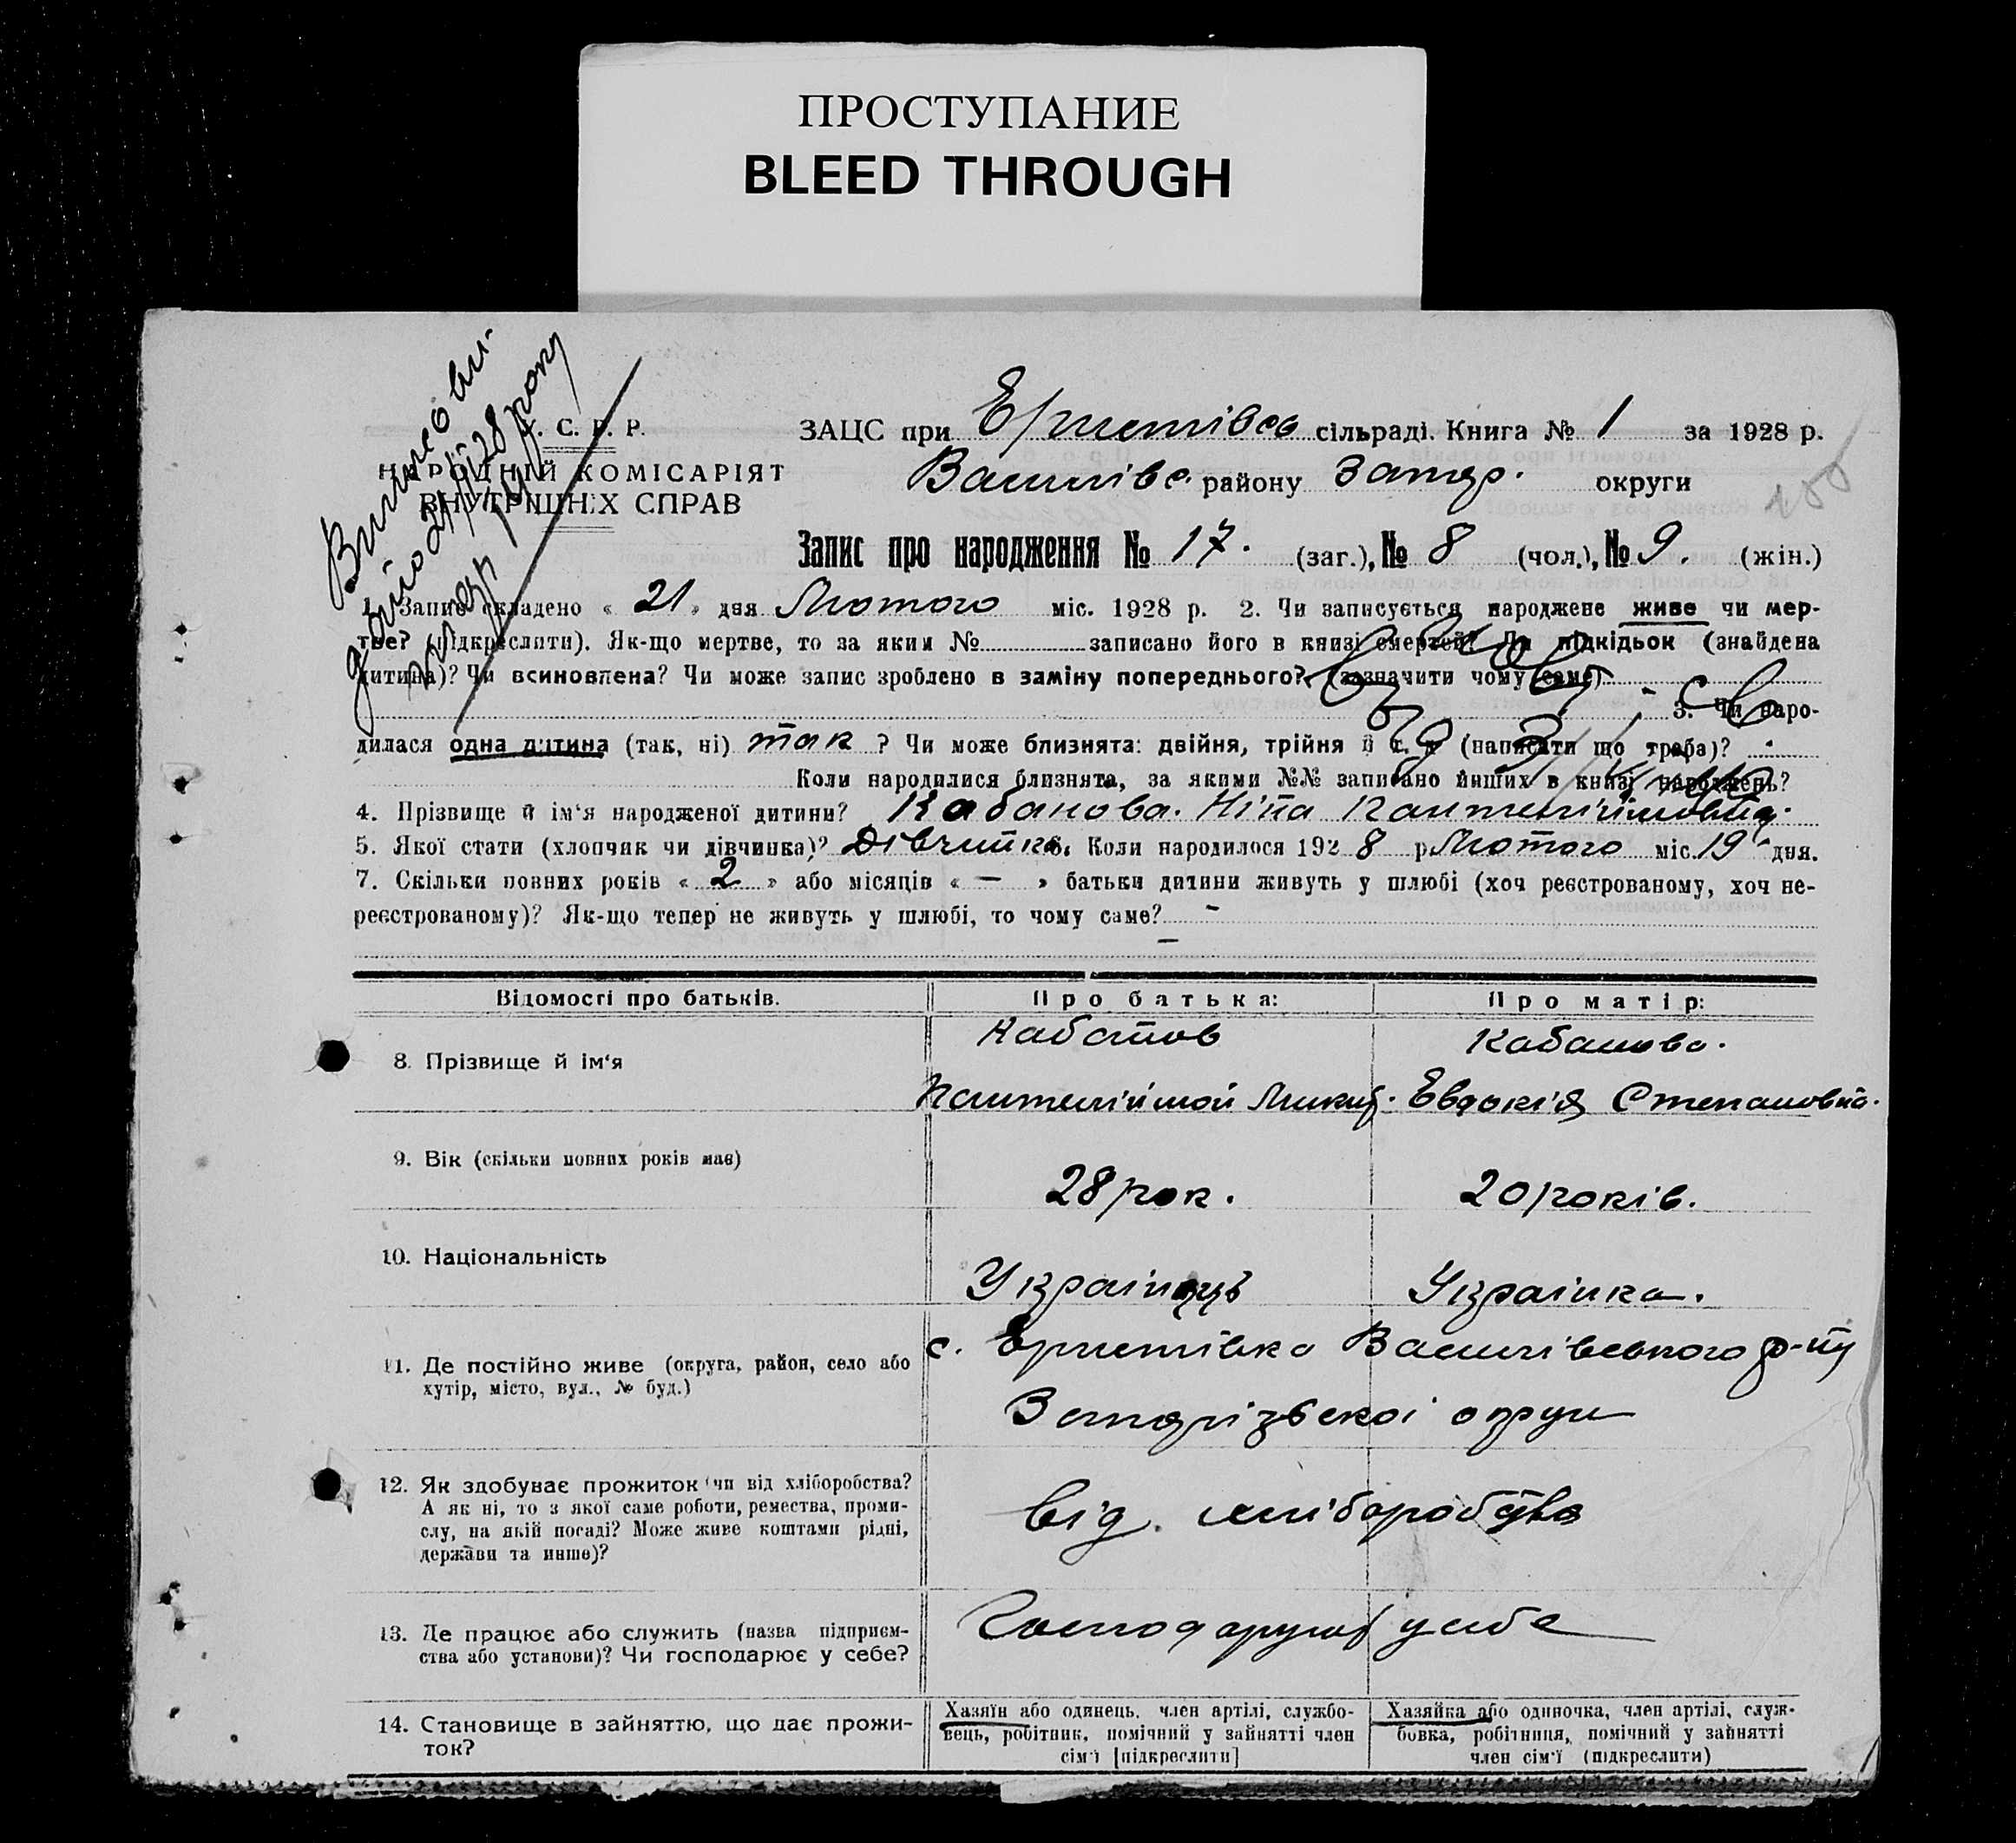 ПРОСТУПАНИЕ
BLEED THROUGH
У. С. Р. Р.
НАРОДНІЙ КОМІСАРІЯТ
ВНУТРІШНІХ СПРАВ
ЗАЦС при сільраді. Книга № 1 за 1928 р.
Василівс. району Запор. округи
Запис про народження № 17. (заг.), № 8 (чол.), № 9. (жін.)
1. Запис складено « 21 » дня Лютого міс. 1928 р. 2. Чи записується народжене живе чи мер-
тве? (підкреслити). Як-що мертве, то за яким № записано його в книзі смертей? Чи підкідьок (знайдена
дитина)? Чи всиновлена? Чи може запис зроблено в заміну попереднього? (зазначити чому саме)
3. Чи наро-
дилася одна дитина (так, ні) так ? Чи може близнята: двійня, трійня й т. д. (написати що треба)?
Коли народилися близнята, за якими №№ записано инших в книзі народжень?
4. Прізвище й ім'я народженої дитини? Кабанова. Ніна Пантелійімовна.
5. Якої стати (хлопчик чи дівчинка)? Дівчинка. 6. Коли народилося 1928 р Лютого міс. 19 дня.
7. Скільки повних років « 2 » або місяців « — » батьки дитини живуть у шлюбі (хоч реєстрованому, хоч не-
реєстрованому)? Як-що тепер не живуть у шлюбі, то чому саме? -
Відомості про батьків. Про батька: Про матір:
8. Прізвище й ім'я Кабанов Кабанова.
Евдокія Степановна.
9. Вік (скільки повних років має) 28 рок. 20 років.
10. Національність Українець Українка.
11. Де постійно живе (округа, район, село або
хутір, місто, вул., № буд.)
с. Василівського р-ну
Запорізької округи
12. Як здобуває прожиток (чи від хліборобства?
А як ні, то з якої саме роботи, ремества, проми-
слу, на якій посаді? Може живе коштами рідні,
держави та инше)?
від. хліборобства
13. Де працює або служить (назва підприєм-
ства або установи)? Чи господарює у себе?
у себе
14. Становище в зайняттю, що дає прожи-
ток?
Хазяїн або одинець, член артілі, службо-
вець, робітник, помічний у зайнятті член
сім'ї [підкреслити]
Хазяйка або одиночка, член артілі, служ-
бовка, робітниця, помічний у зайнятті
член сім'ї (підкреслити)